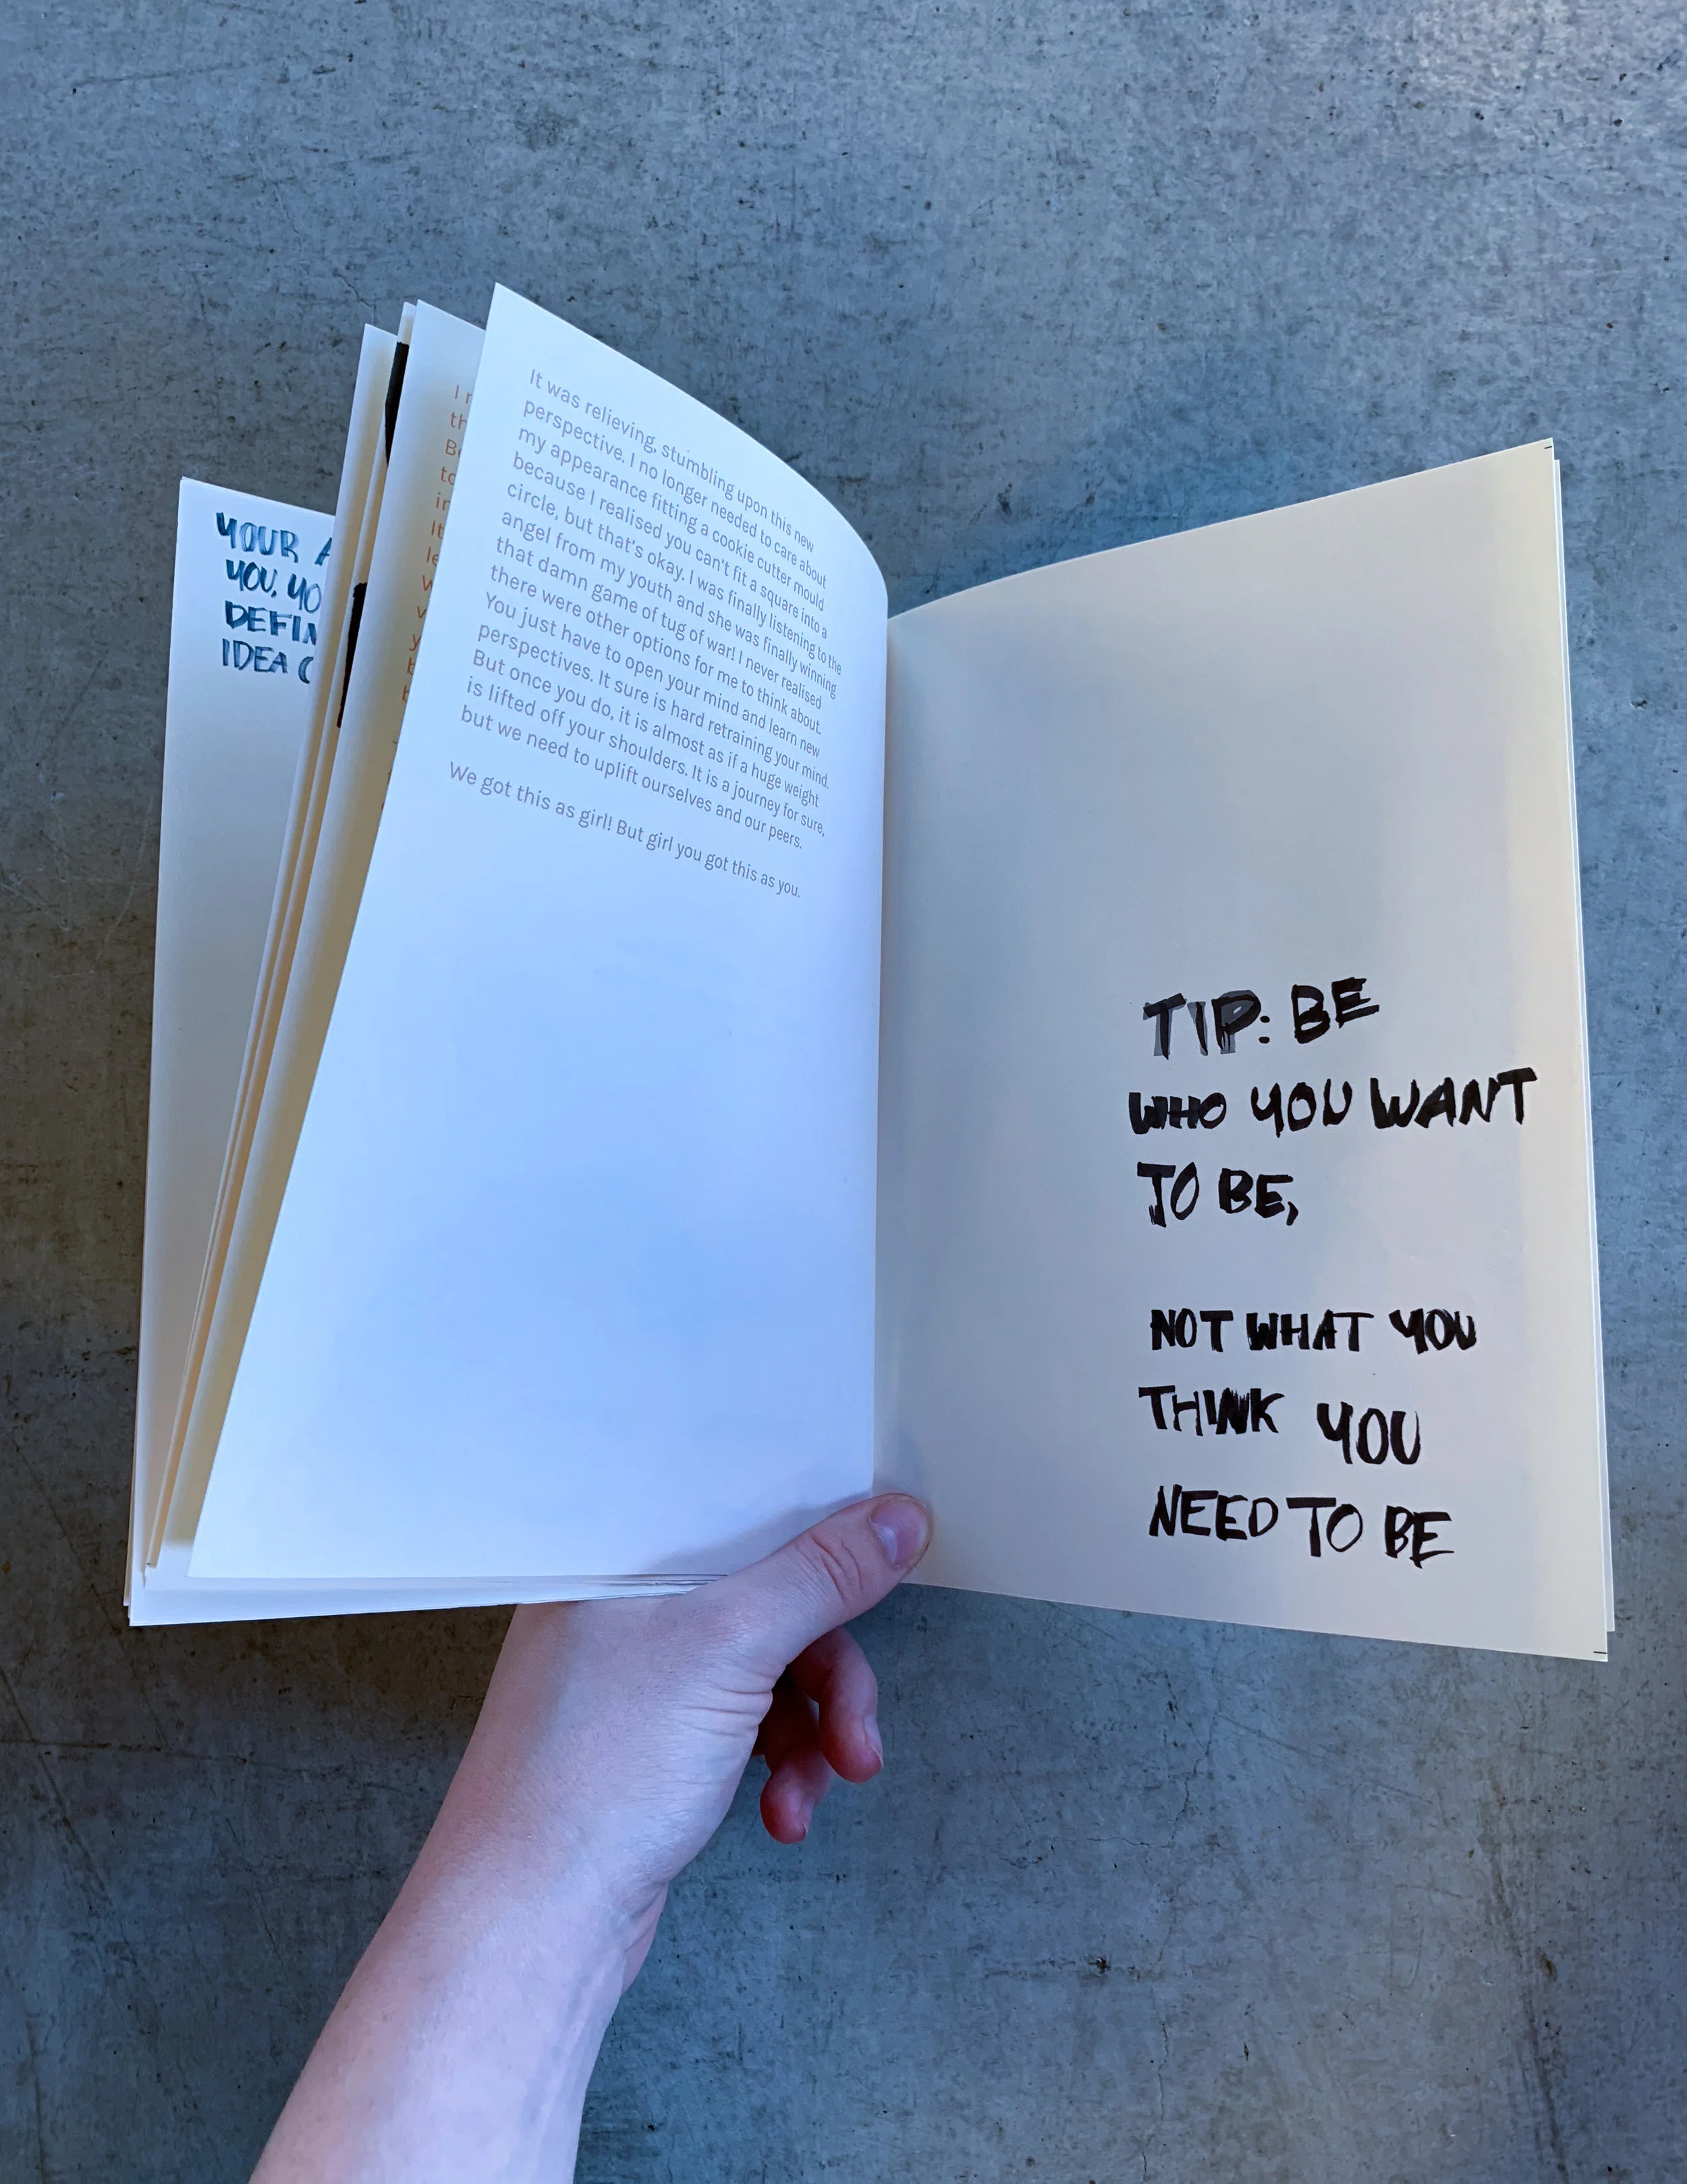 YOUR
YOU, YO
DEFIN
IDEA
I
th
to
in
It
le
It was relieving, stumbling upon this new
perspective. I no longer needed to care about
my appearance fitting a cookie cutter mould
because I realised you can't fit a square into a
circle, but that's okay. I was finally listening to the
angel from my youth and she was finally winning
that damn game of tug of war! I never realised
there were other options for me to think about.
You just have to open your mind and learn new
perspectives. It sure is hard retraining your mind.
But once you do, it is almost as if a huge weight
is lifted off your shoulders. It is a journey for sure,
but we need to uplift ourselves and our peers.
We got this as girl! But girl you got this as you.
TIP: BE
WHO YOU WANT
TO BE,
NOT WHAT YOU
THINK YOU
NEED TO BE